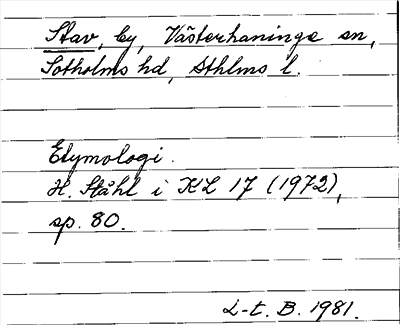 Stav, by, Västerhaninge sn,
Sotholms hd, Sthlms l.
Etymologi.
H. Ståhl i KL 17 (1972),
sp. 80.
L-t. B. 1981.